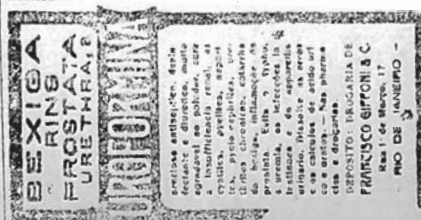 BEXIGA
RINS
PROSTATA
URETHRA
UROFORMINA
precioso antiseptico, desin
fectante e diuretico, muito
agradavel ao paladar, cura
a insufficiencia renal, as
cystites, pyelites, nephri
tes, pyelo-nephrites, ure-
thrites chronicas, catarrho
da bexiga, inflammação da
prostata. Evita o typho,
a uremia, as infecções in
testinaes e do apparelho
urinario. Dissolve as areas
e os calculos de acido uri
co e uratos. — Nas pharma
cias e drogarias.
DEPOSITO: DROGARIA DE
FRANCISCO GIFFONI & C.
Rua 1º de Março, 17
RIO DE JANEIRO -